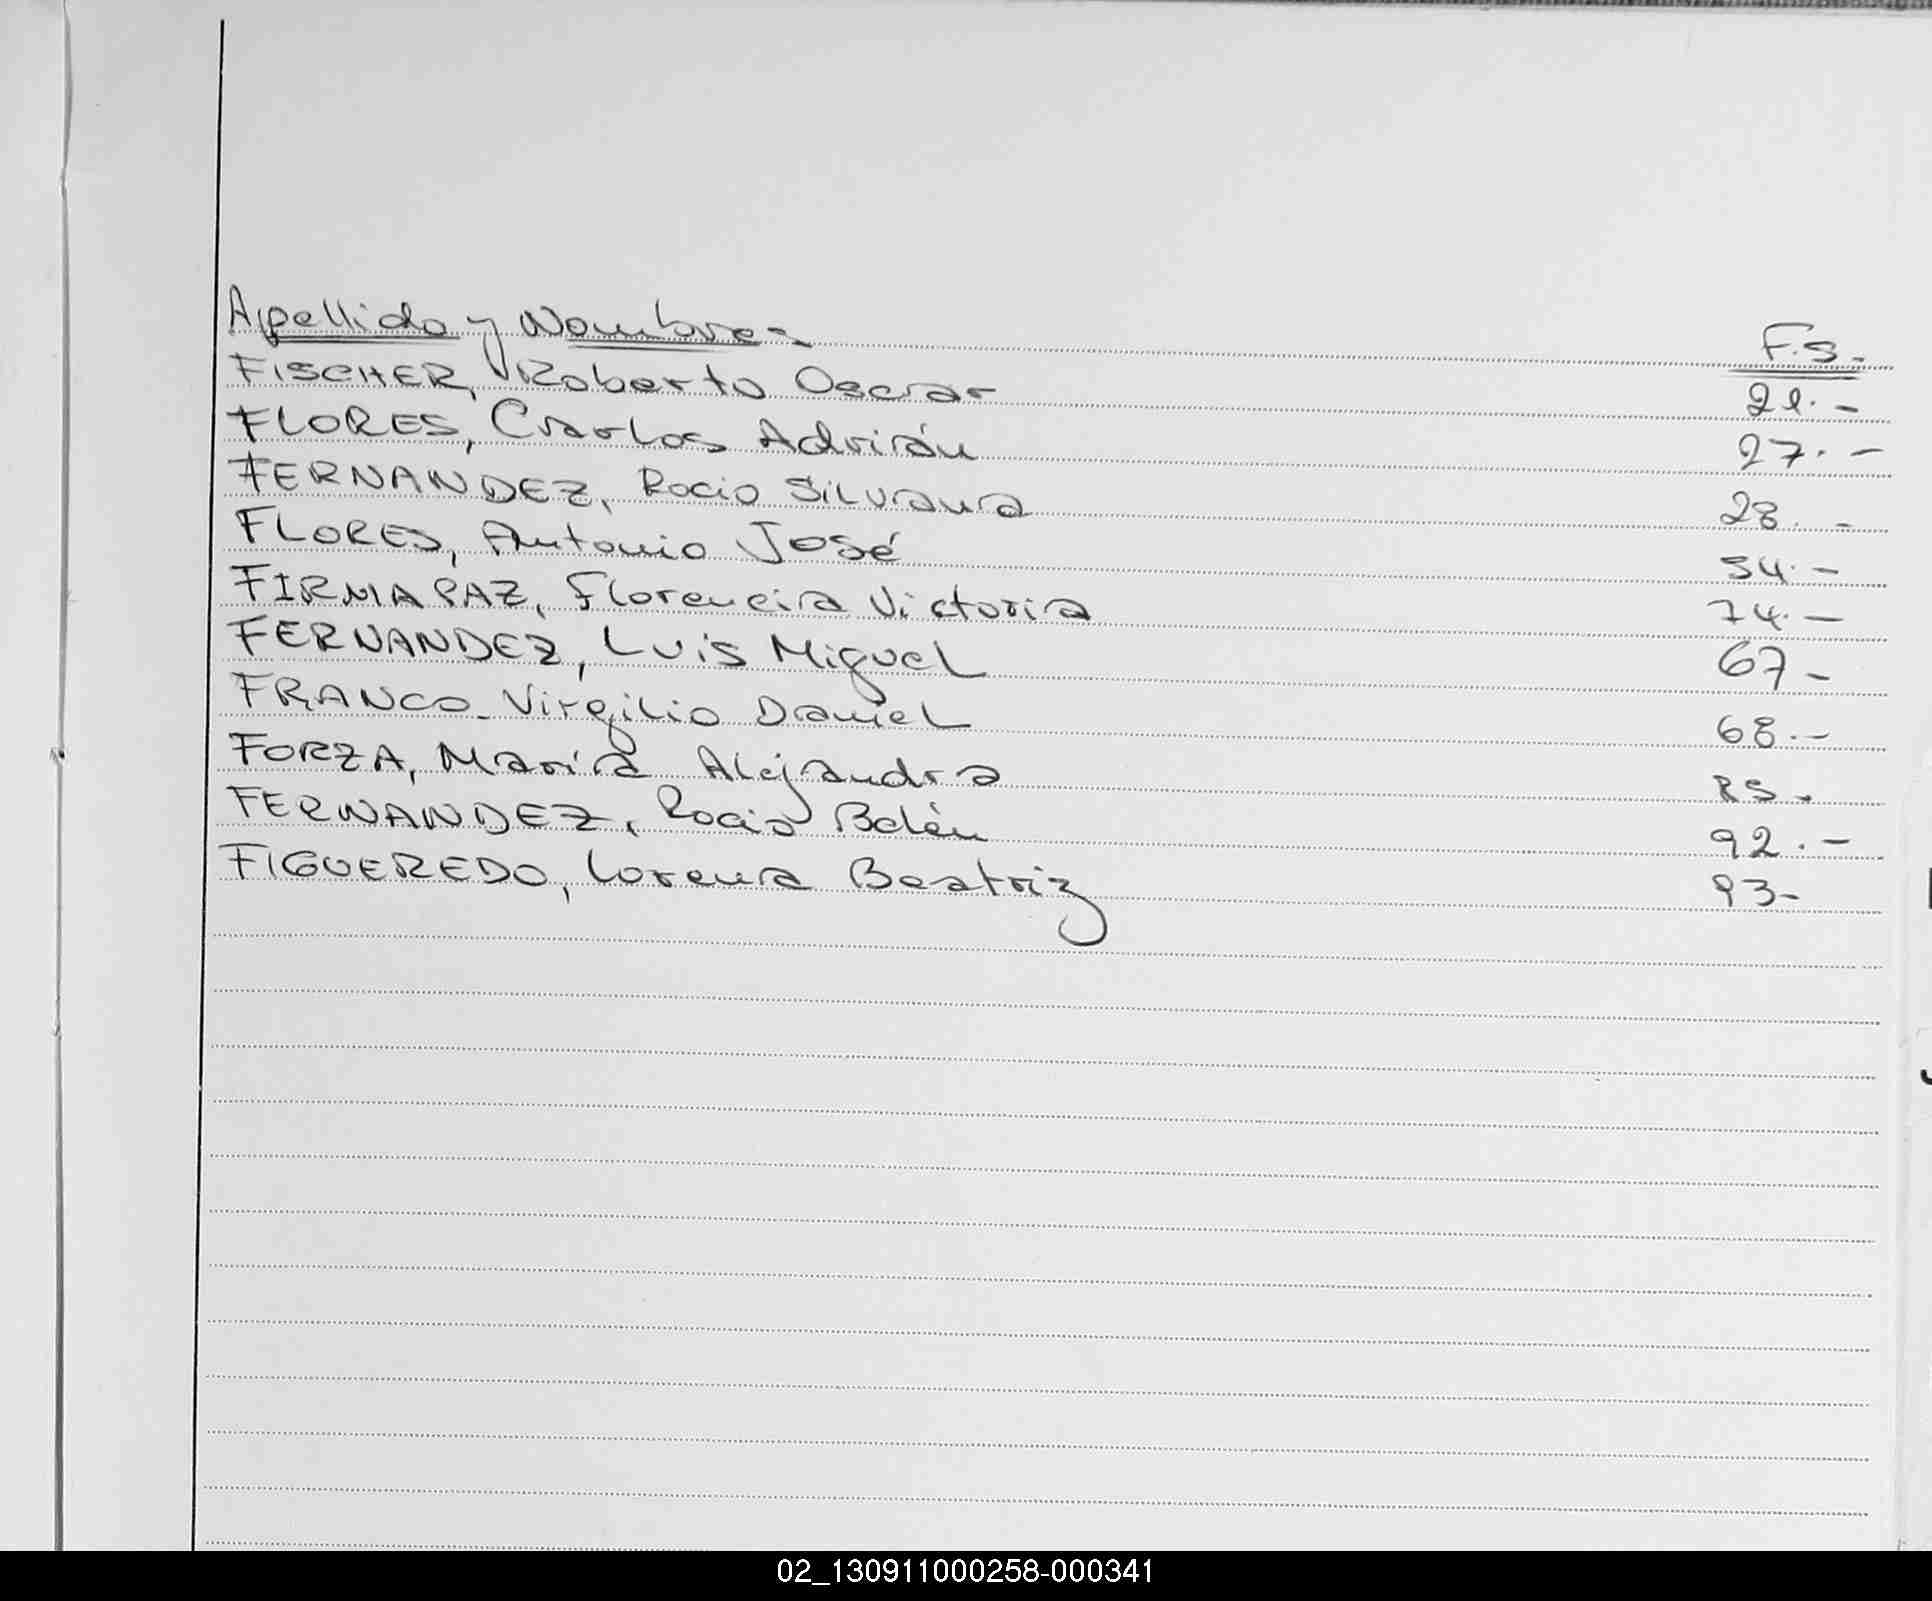 Apellido y Nombre- F.S.-
FISCHER, Roberto Oscar 21.-
FLORES, Carlos Adrián 27.-
FERNANDEZ, Rocio Silvana 28.-
FLORES, Antonio José 54.-
FIRMAPAZ, Florencia Victoria 74.-
FERNANDEZ, Luis Miguel 67-
FRANCO- Virgilio Daniel 68.-
FORZA, María Alejandra 85.
FERNANDEZ, Rocio Belén 92.-
FIGUEREDO, Lorena Beatriz 93-
02_130911000258-000341